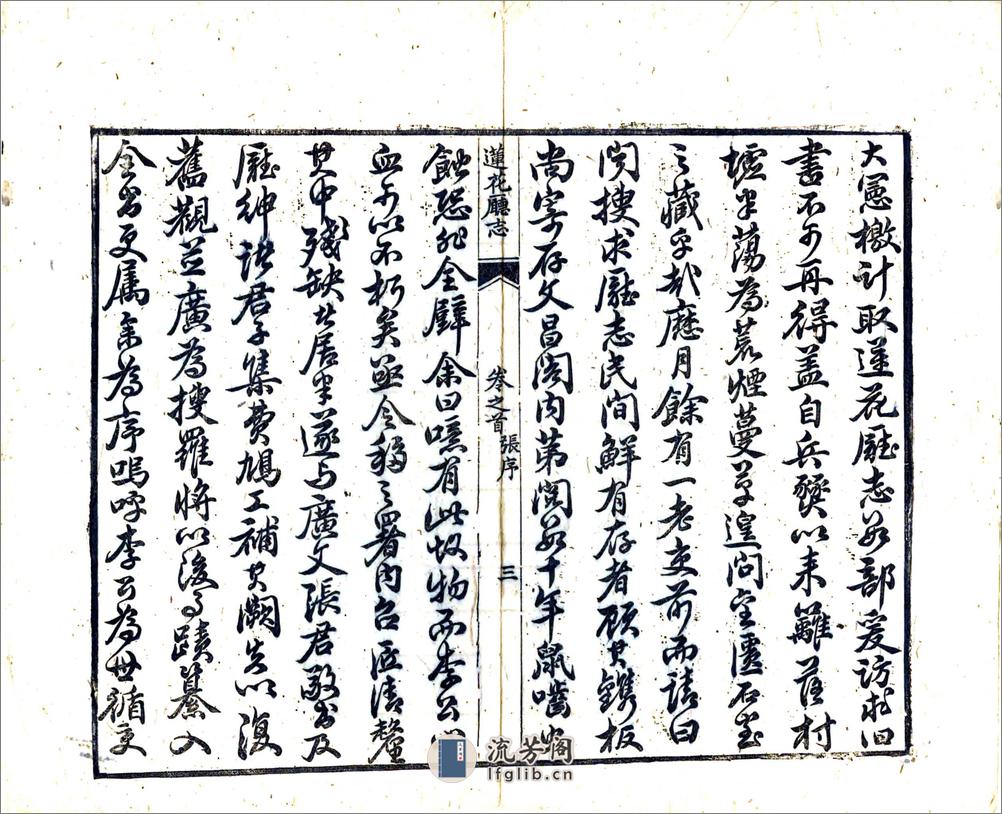 大憲檄計取蓮花廳志若干部爰訪求旧
書不可再得蓋自兵燹以來籬落村
墟半蕩為荒煙蔓草遑問金匱石室
之藏乎哉歷月餘有一老吏前而請曰
閱搜求廳志民間鮮有存者顧其鐫板
尚寄存文昌閣內第閱數十年鼠嚙虫
蝕恐非全璧余曰噫有此故物而李公心
血可以不朽矣亟令移之署內召匠清釐
其中殘缺者居半遂与廣文張君敬書及
廳紳諸君子集費鳩工補其闕失以復
舊觀並廣為搜羅將以後事蹟纂入
全省更属余為序嗚呼李公為世循吏
蓮花廳志
卷之首
張序
三
流芳阁
lfglib.cn